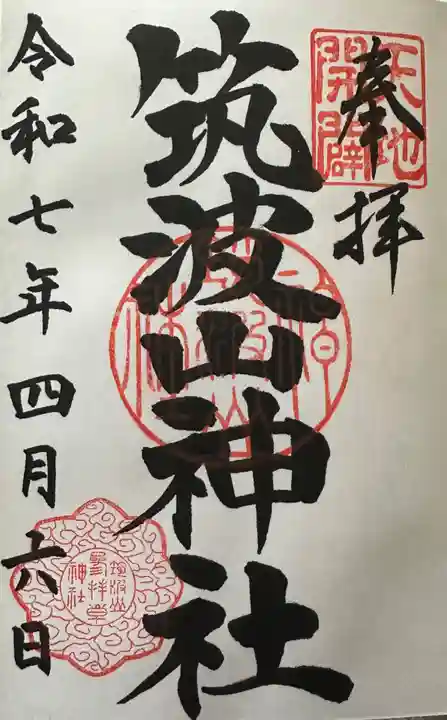 奉拝
天地開闢
筑波山神社
令和七年四月六日
筑波山
参拝章
神社